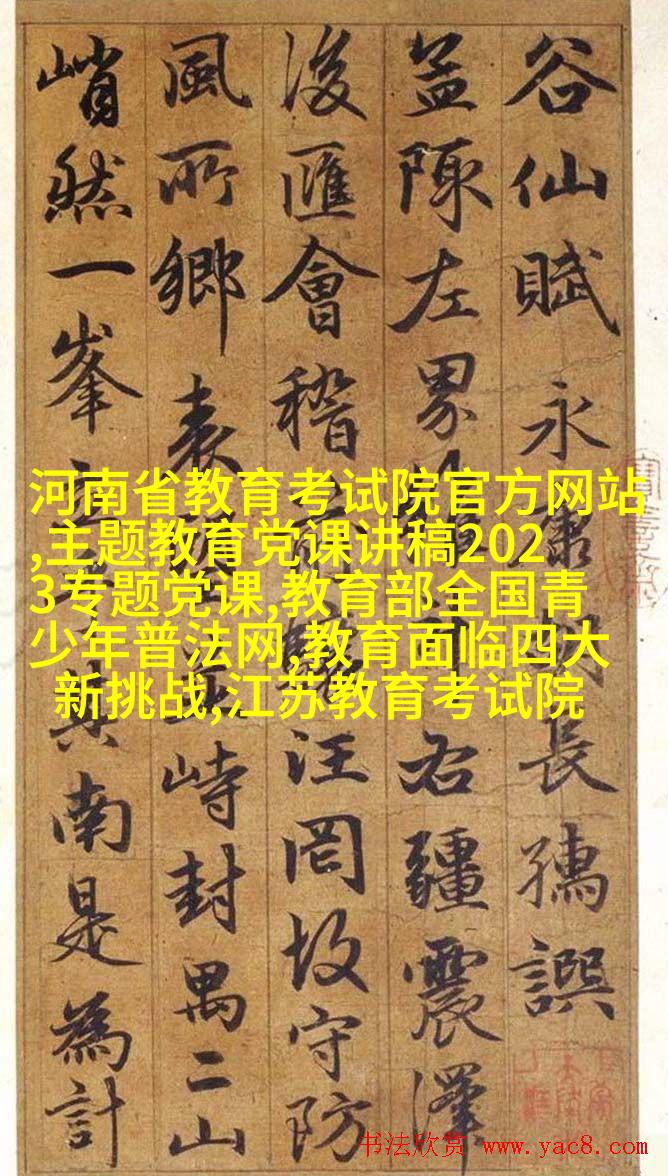 谷仙賦永康長孺譔
盖陳左界右疆震澤
後匯會稽汪罔故守防
風所鄉表峙封禺二山
峭然一峯其南是為計
河南省教育考试院官方网站
,主题教育党课讲稿202
3专题党课,教育部全国青
少年普法网,教育面临四大
新挑战,江苏教育考试院
书法欣赏 www.yac8.com